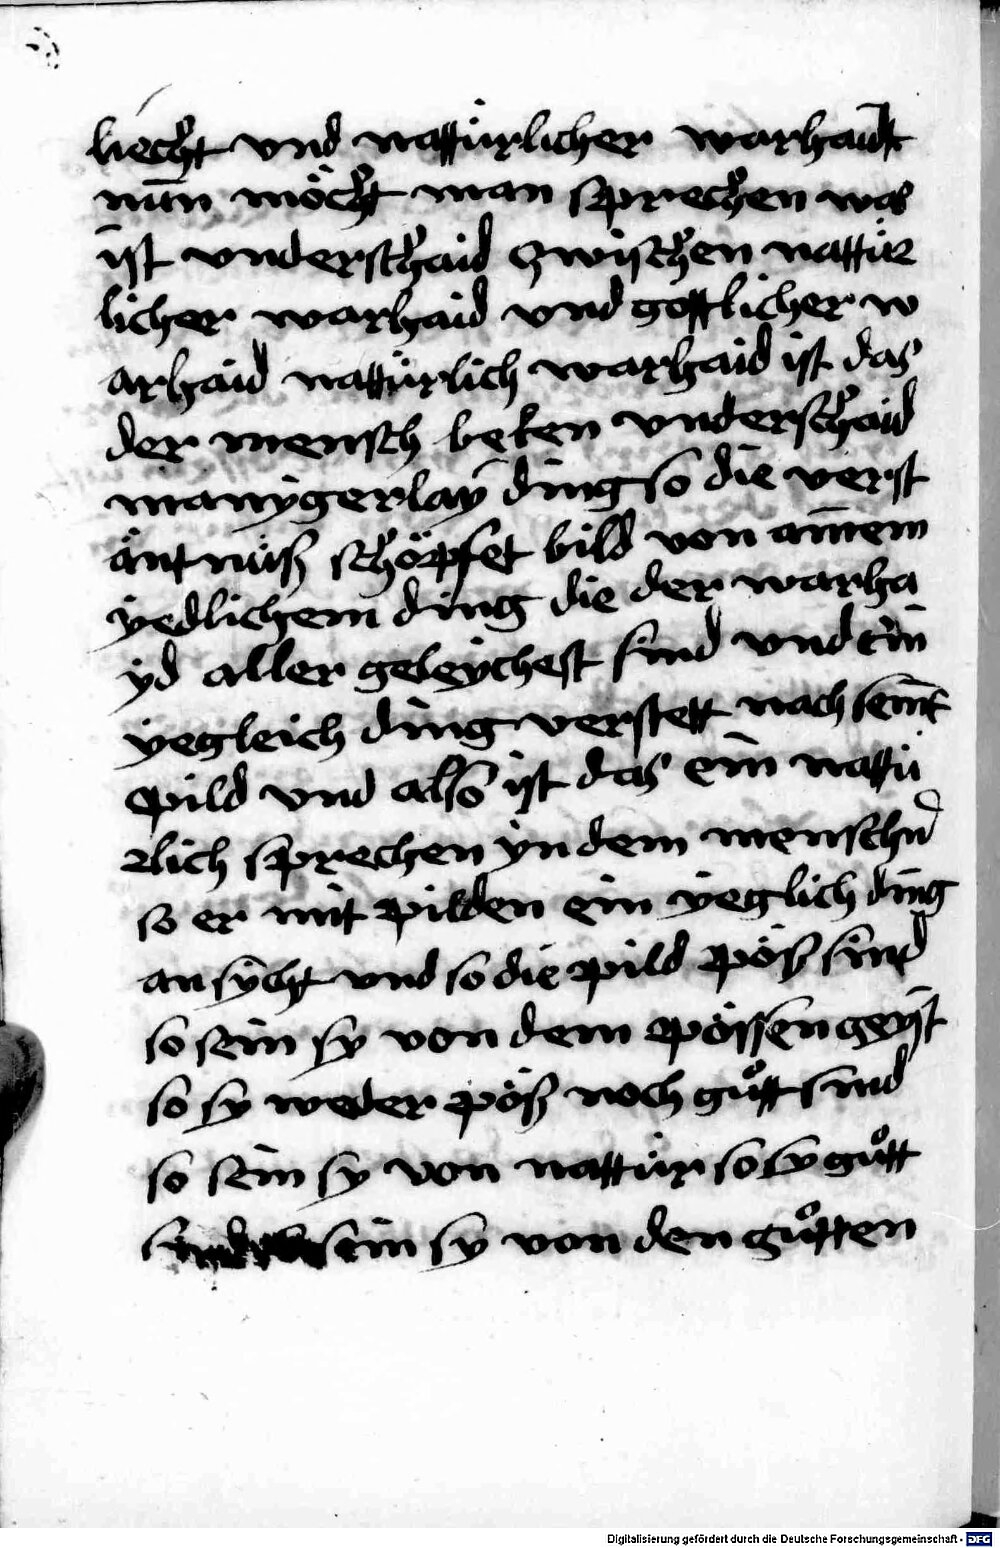 liecht vnd nattürlicher warhaidt
nūn möcht man sprechen was
ist vnderschaid zwischen nattür
licher warhaid vnd gottlicher w
arhaid nattürlich warhaid ist das
der mensch beken vnderschaid
manigerlaÿ ding so die verst
äntnüß schöpfet bild von ainem
ÿedlichem ding die der warha
ÿd aller geleÿchest sind vnd ein
ÿegleich ding verstett nach seinē
pild vnd also ist das ein nattü
rlich sprechen ÿn dem menschn
so er mit pilden ein ÿeglich ding
an sÿcht vnd so die pild pöß sind
so sein sy von dem pössen geÿst
so sy weder pöß noch gůtt sind
so sein sy von nattür so sy gůtt
sind sein sy von den gůtten
Digitalisierung gefördert durch die Deutsche Forschungsgemeinschaft - DFG